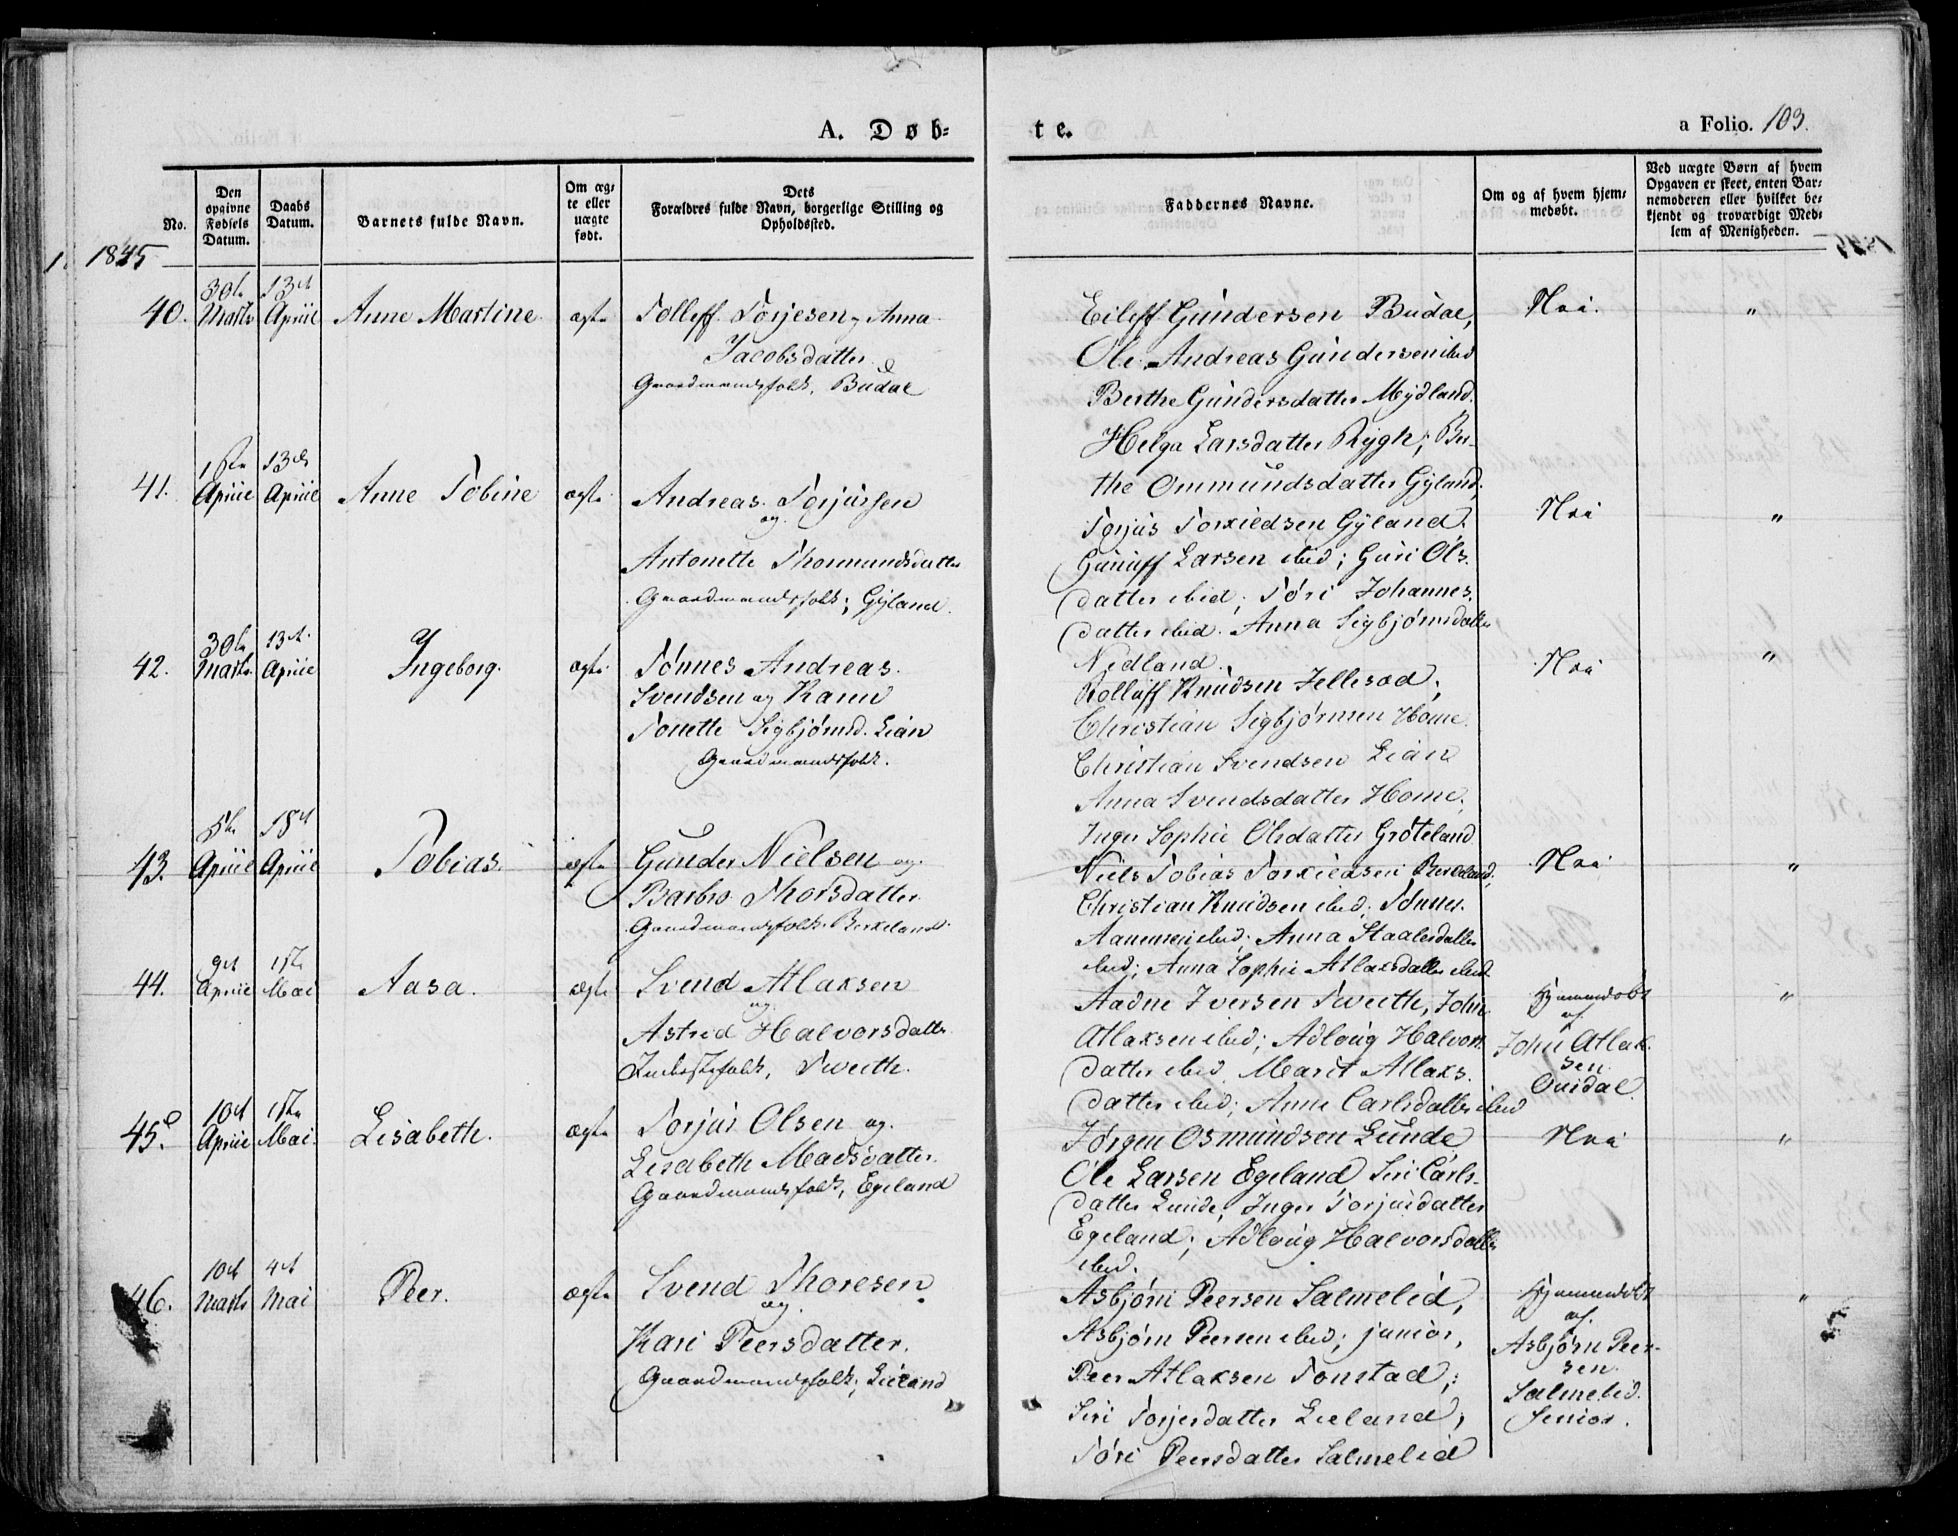 A. Døb-
te.
a Folio. 103.
No.
Den opgivne Fødsels Datum.
Daabs Datum.
Barnets fulde Navn.
Om ægte eller uægte født.
Dets Forældres fulde Navn, borgerlige Stilling og Opholdssted.
Faddernes Navne.
Om og af hvem hjemmedøbt.
Ved uægte Børn af hvem Opgaven er skeet, enten Barnemoderen eller hvilket bekjendt og troværdigt Medlem af Menigheden.
1845
40.
30te Marts
13de April
Anne Martine
ægte
Tolleff Torjesen og Anna
Jacobsdatter
Gaardmandsfolk, Budal
Eileff Gundersen Budal,
Ole Andreas Gundersen ibid
Berthe Gundersdatter Mydland.
Helga Larsdatter Rygh; Ber-
the Ommundsdatter Gyland;
Nei.
"
41.
April
13de April
Anne Tobine
ægte
Andreas Torjussen
og
Antonette Thormundsdatter
Gaardmandsfolk; Gyland.
Torjus Torkildsen Gyland.
Gunuff Larsen ibid; Guri Ols-
datter ibid; Tøri Johannes-
datter ibid. Anna Sigbjørnsdatter
Nedland.
Nei
"
42.
30te Marts
13de April
Ingeborg.
ægte
Tønnes Andreas
Svendsen og Karen
Tonette Sigbjørnsd. Lian
Gaardmandsfolk.
Rolluff Knudsen Jellesad;
Christian Sigbjørnsen Home.
Christian Svendsen Lian
Anna Svendsdatter Home.
Inger Sophie Olsdatter Grøteland
Nei
"
43.
5te April
April
Tobias.
ægte
Gunder Nielsen og
Barbro Thorsdatter
Gaardmandsfolk. Berkeland.
Niels Tobias Torkildsen Berkeland;
Christian Knudsen ibid; Tønnes
Aanensen ibid; Anna Staalesdatter
ibid; Anna Sophie Atlaksdatter ibid
Nei
"
44.
9de April
1ste Mai
Aasa.
ægte
Svend Atlaksen
og
Astrid Halvorsdatter
Inderstefolk, Tveith.
Aadne Iversen Tveith, John
Atlaksen ibid; Adloug Halvors-
datter ibid. Marit Atlaks-
datter ibid; Anne Carlsdatter ibid
Hjemmedøbt
af
John Atlak-
sen
Ousdal.
"
45.
10de April
1ste Mai.
Lisabeth.
ægte
Torjus Olsen og
Lisabeth Madsdatter.
Gaardmandsfolk, Egeland
Jørgen Osmundsen Lunde
Ole Larsen Egeland, Siri Carls-
datter Lunde, Inger Torjusdatter
Egeland; Adloug Halvorsdatter
ibid.
Nei
"
46.
10de Marts
4de Mai
Peer.
ægte
Svend Thoresen
og
Kari Peersdatter.
Gaardmandsfolk; Lieland
Asbjørn Peersen Salmelid,
Asbjørn Peersen ibid; junior,
Peer Atlaksen Tonstad;
Siri Torjesdatter Lieland;
Tøri Peersdatter Salmelid
Hjemmedøbt
af
Asbjørn Peer-
sen
Salmelid
Senior.
"